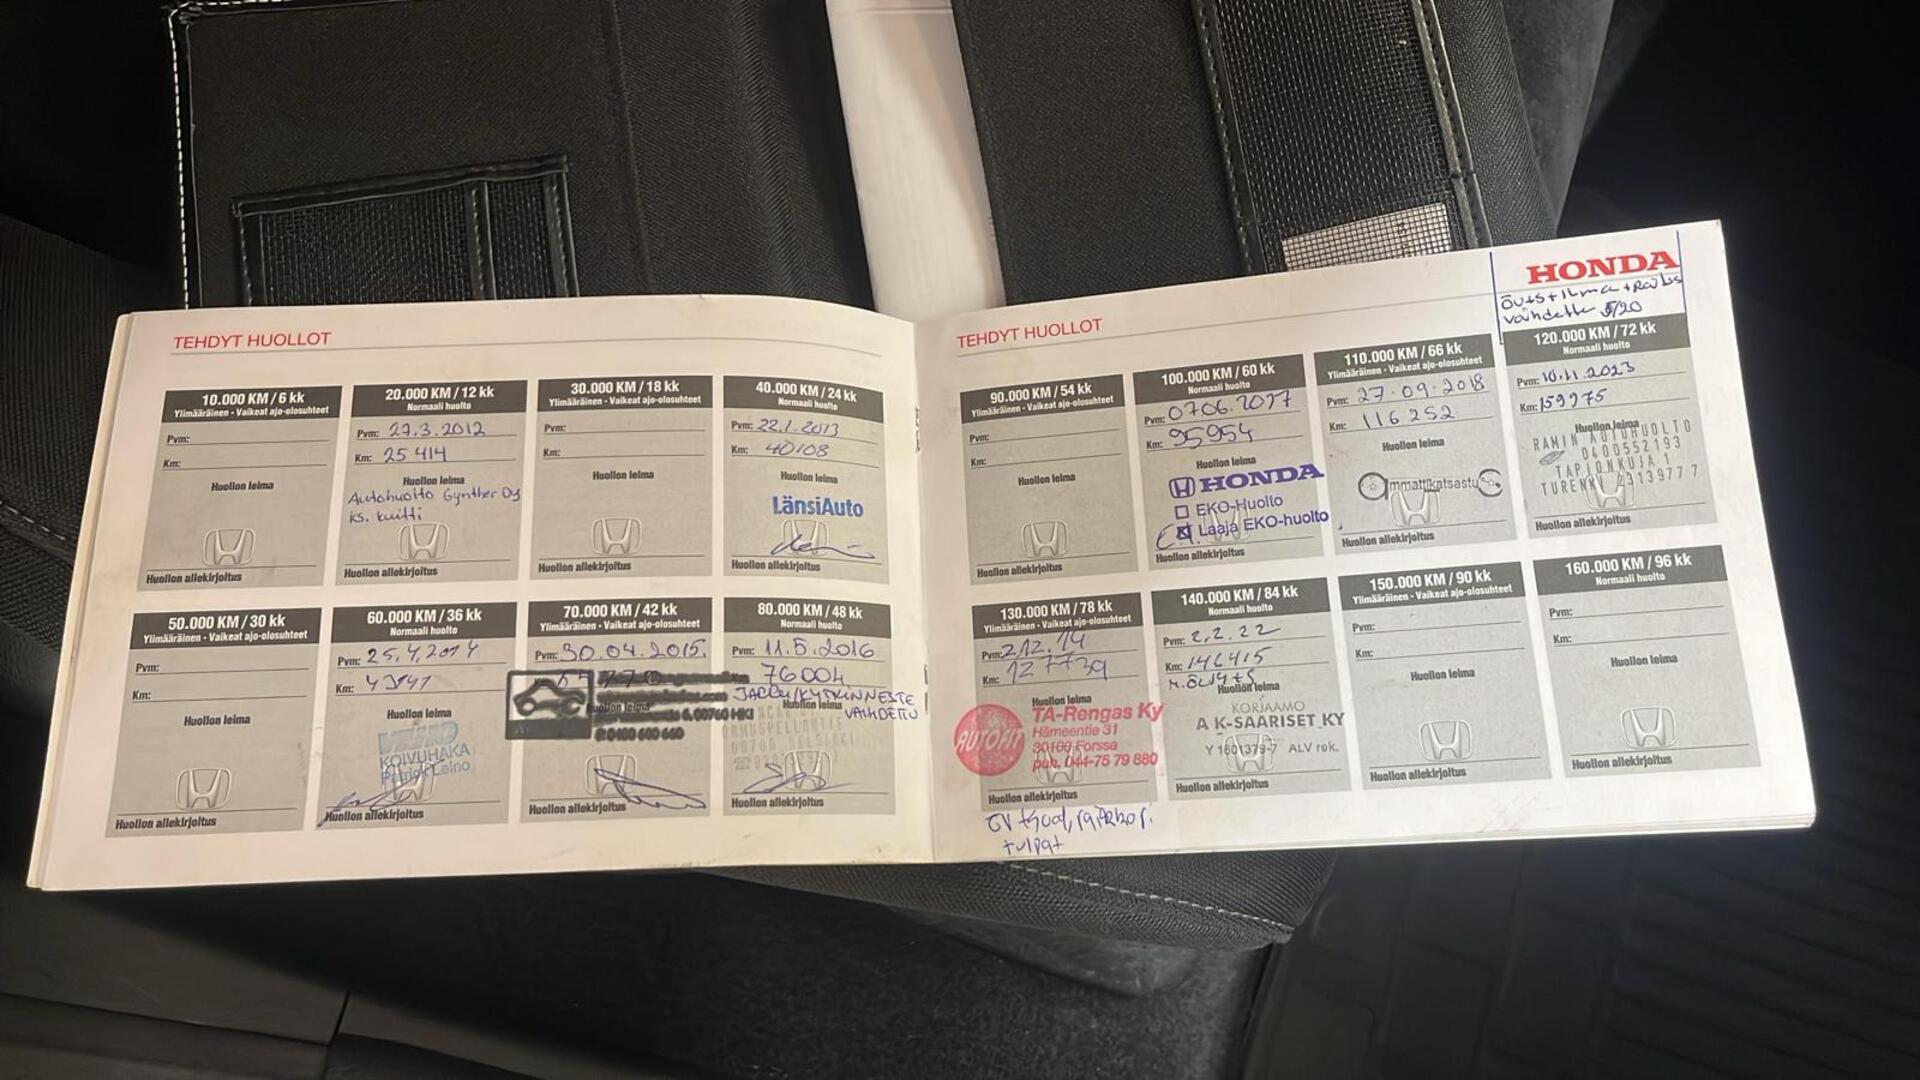 TEHDYT HUOLLOT
10.000 KM / 6 kk
Ylimääräinen - Vaikeat ajo-olosuhteet
Pvm:
Km:
Huollon leima
Huollon allekirjoitus
20.000 KM / 12 kk
Normaali huolto
Pvm: 27.3.2012
Km: 25 414
Huollon leima
Autohuolto Gynther Oy
ks. kuitti
Huollon allekirjoitus
30.000 KM / 18 kk
Ylimääräinen - Vaikeat ajo-olosuhteet
Pvm:
Km:
Huollon leima
Huollon allekirjoitus
40.000 KM / 24 kk
Normaali huolto
Pvm: 22.1.2013
Km: 40108
Huollon leima
LänsiAuto
Huollon allekirjoitus
50.000 KM / 30 kk
Ylimääräinen - Vaikeat ajo-olosuhteet
Pvm:
Km:
Huollon leima
Huollon allekirjoitus
60.000 KM / 36 kk
Normaali huolto
Pvm: 25.4.2014
Km:
Huollon leima
KOIVUHAKA
Patrick Leino
Huollon allekirjoitus
70.000 KM / 42 kk
Ylimääräinen - Vaikeat ajo-olosuhteet
Pvm: 30.04.2015.
Huollon leima
00760 HKI
Huollon allekirjoitus
80.000 KM / 48 kk
Normaali huolto
Pvm: 11.5.2016
76004
JARRU/KYTKINNESTE
Huollon leima
VAIHDETTU
00700 HELSINKI
Huollon allekirjoitus
TEHDYT HUOLLOT
HONDA
vaihdettu 5/20
90.000 KM / 54 kk
Ylimääräinen - Vaikeat ajo-olosuhteet
Pvm:
Km:
Huollon leima
Huollon allekirjoitus
100.000 KM / 60 kk
Normaali huolto
Pvm: 07.06.2017
Km: 95954
Huollon leima
HONDA
EKO-Huolto
Laaja EKO-huolto
Huollon allekirjoitus
110.000 KM / 66 kk
Ylimääräinen - Vaikeat ajo-olosuhteet
Pvm: 27.09.2018
Km: 116 252
Huollon leima
Ammattikatsastus
Huollon allekirjoitus
120.000 KM / 72 kk
Normaali huolto
Pvm: 10.11.2023
Km: 159975
Huollon leima
RAMIN AUTOHUOLTO
0400552193
TAPIONKUJA 1
TURENKI 2313977 7
Huollon allekirjoitus
130.000 KM / 78 kk
Ylimääräinen - Vaikeat ajo-olosuhteet
Pvm:
Km: 127739
Huollon leima
AUTOFIT
TA-Rengas Ky
Hämeentie 31
30100 Forssa
puh. 044-75 79 880
Huollon allekirjoitus
tulpat
140.000 KM / 84 kk
Normaali huolto
Pvm: 2.2.22
Km: 146415
Huollon leima
KORJAAMO
A K-SAARISET KY
Y 1601379-7 ALV rek.
Huollon allekirjoitus
150.000 KM / 90 kk
Ylimääräinen - Vaikeat ajo-olosuhteet
Pvm:
Km:
Huollon leima
Huollon allekirjoitus
160.000 KM / 96 kk
Normaali huolto
Pvm:
Km:
Huollon leima
Huollon allekirjoitus